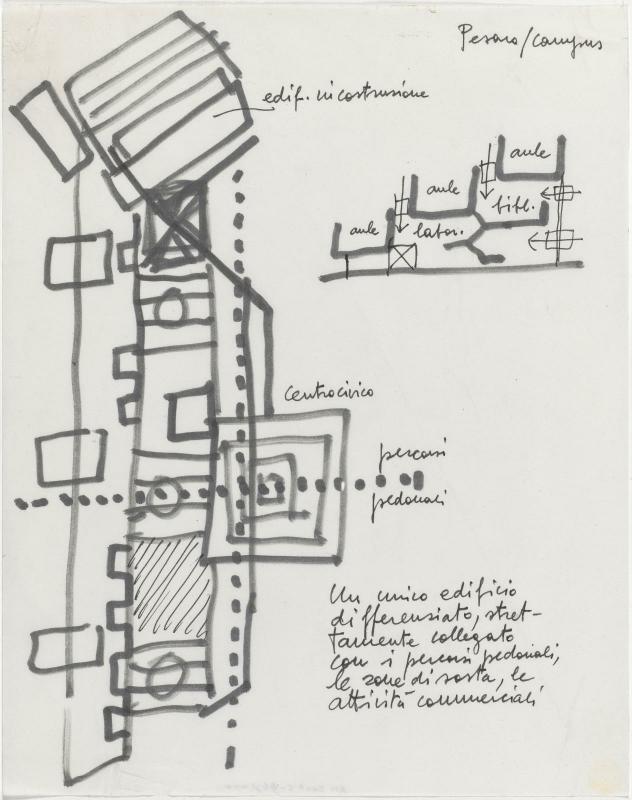 Pesaro/campus
edif. in costruzione
aule
aule
bibl.
aule
labor.
Centro civico
percorsi
pedonali
Un unico edificio
differenziato, stret-
tamente collegato
con i percorsi pedonali,
le zone di sosta, le
attività commerciali